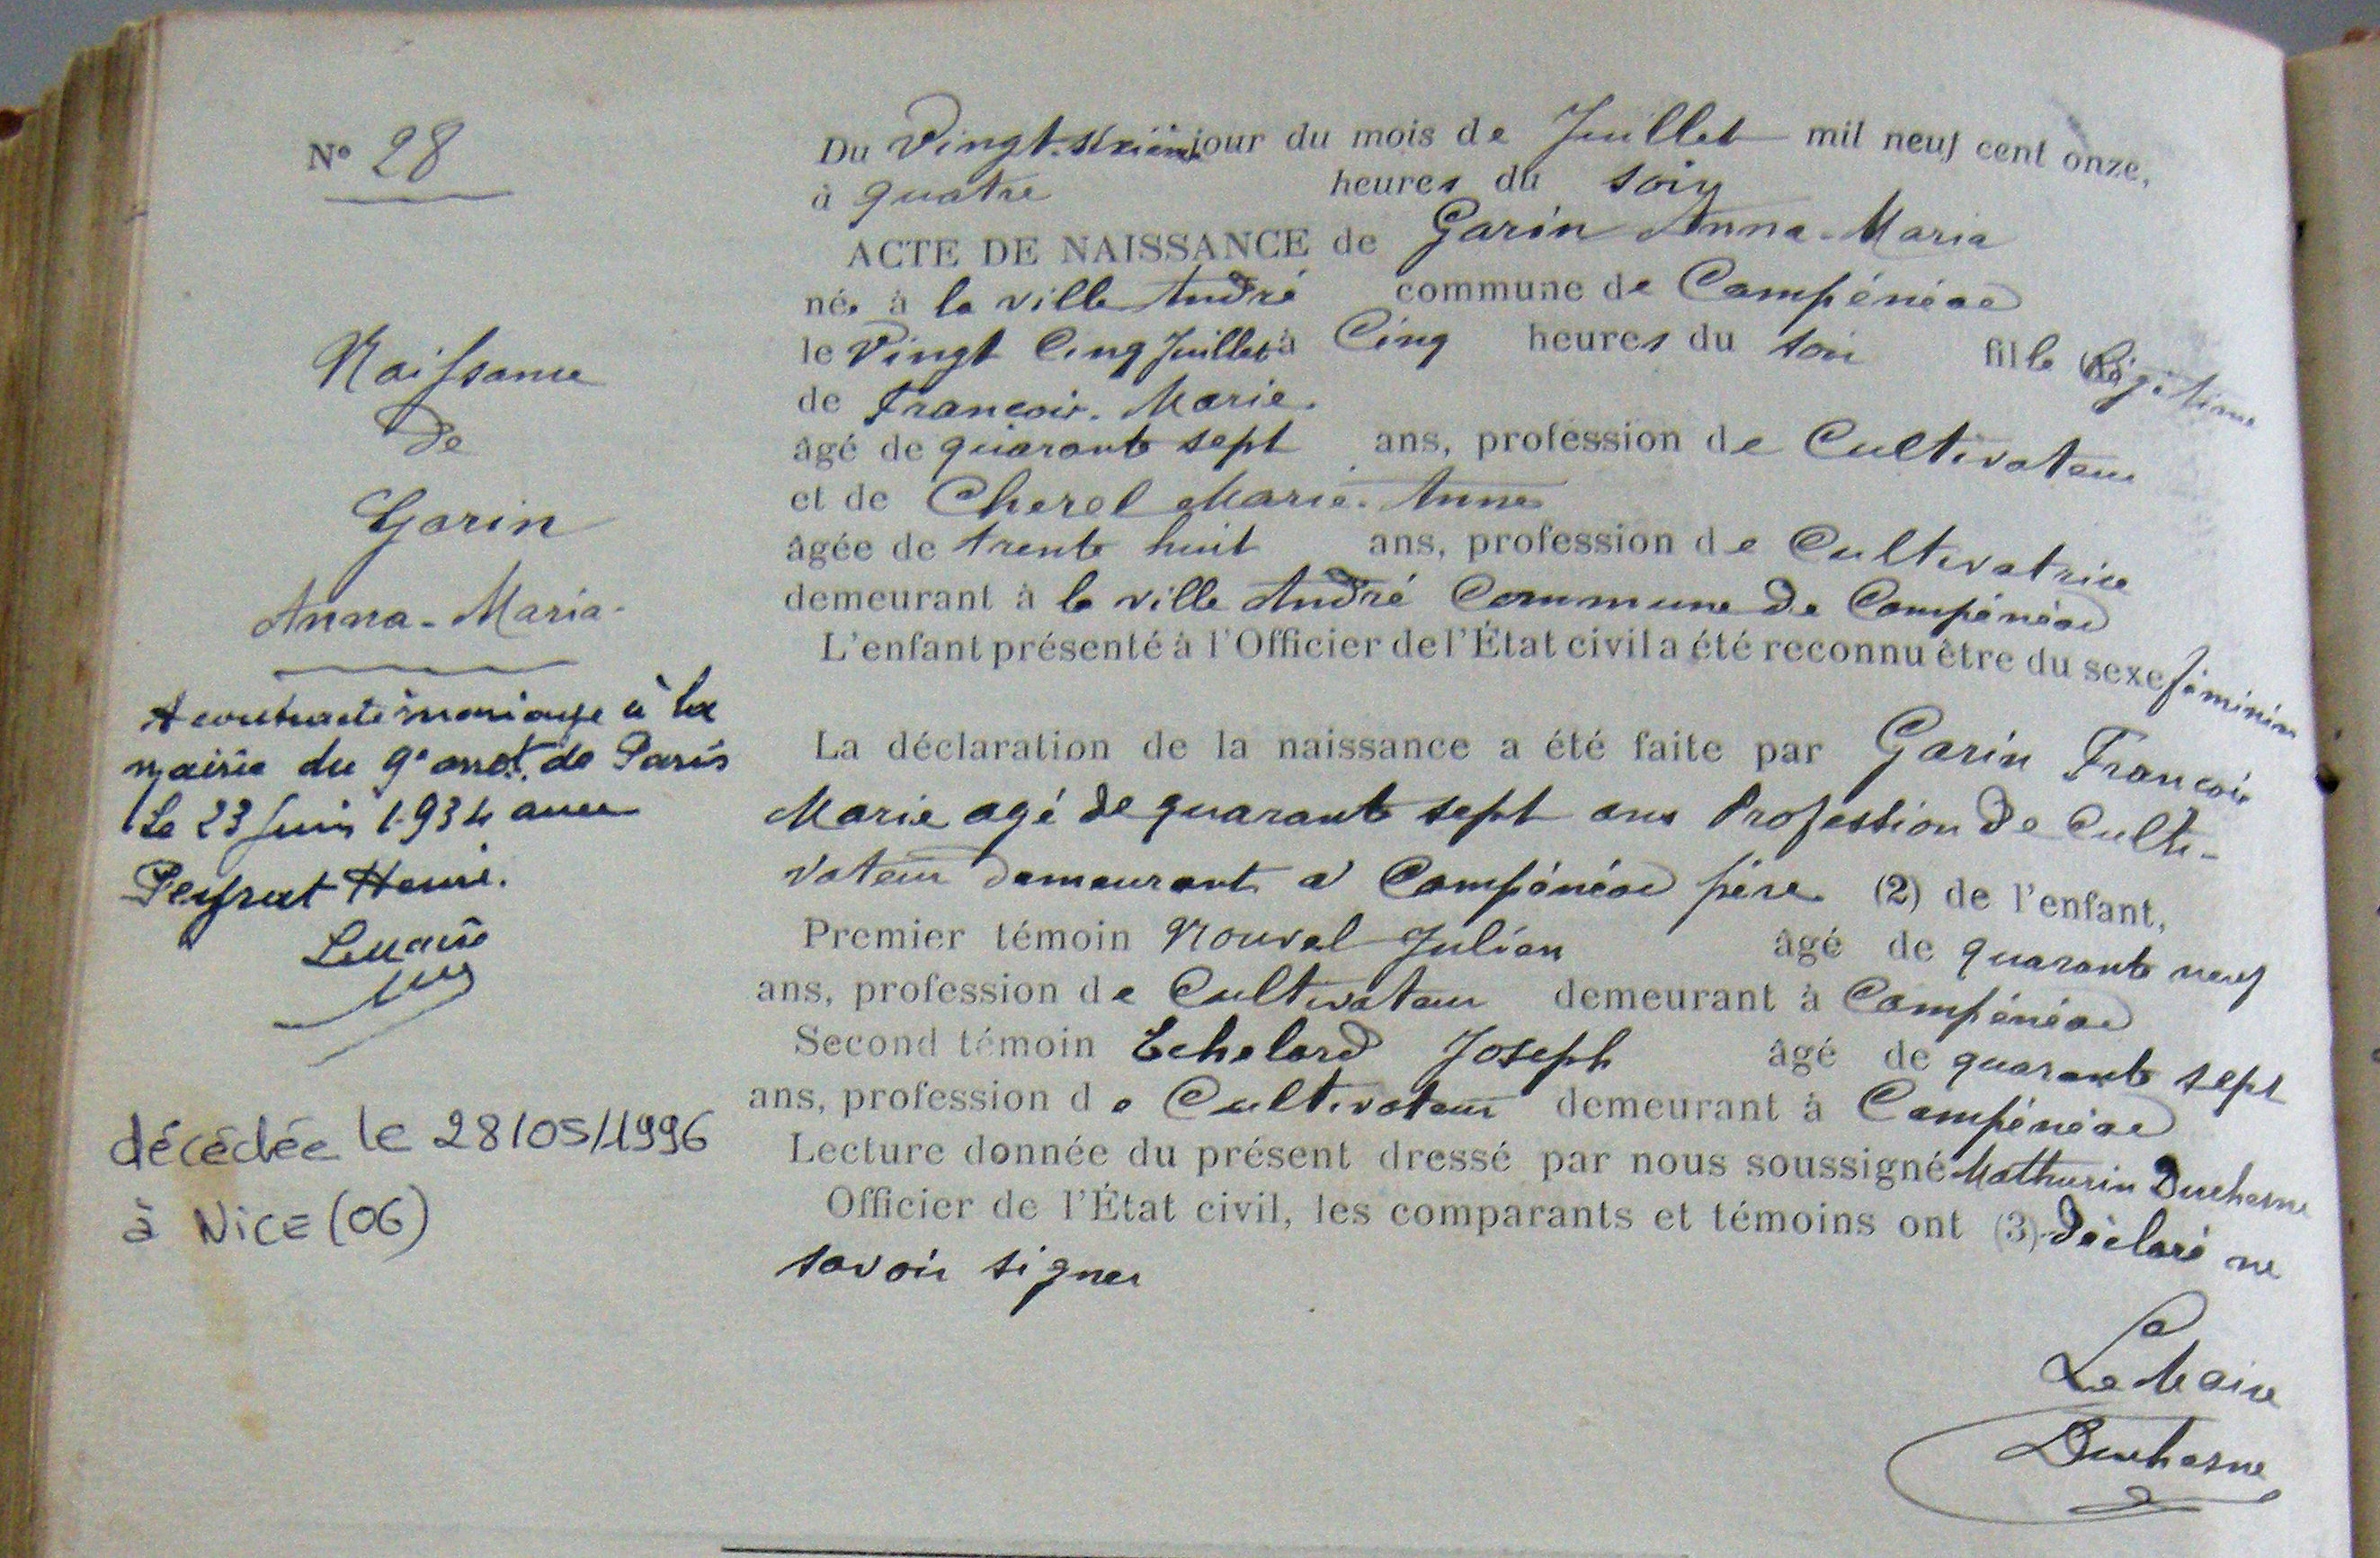 N° 28
Naissance
de
Garin
Anna-Maria-
A contracté mariage à la
mairie du 9e arrot. de Paris
Le 23 Juin 1934 avec
Peyrat Henri.
Le Maire
décédée le 28/05/1996
à NiCE (06)
Du Vingt-sixième jour du mois de Juillet mil neuf cent onze,
à quatre heures du soir
ACTE DE NAISSANCE de Garin Anna-Maria
née à la ville André commune de Campénéac
le Vingt Cinq Juillet à Cinq heures du soir fille légitime
de François. Marie.
âgé de quarante sept ans, profession de Cultivateur
et de Cherel Marie. Anne
âgée de trente huit ans, profession de Cultivatrice
demeurant à la ville André Commune de Campénéac
L'enfant présenté à l'Officier de l'État civil a été reconnu être du sexe féminin
La déclaration de la naissance a été faite par Garin François
Marie agé de quarante sept ans Profession de Culti-
vateur demeurant à Campénéac père (2) de l'enfant,
Premier témoin Nouvel Julien âgé de quarante neuf
ans, profession de Cultivateur demeurant à Campénéac
Second témoin Echelard Joseph âgé de quarante sept
ans, profession de Cultivateur demeurant à Campénéac
Lecture donnée du présent dressé par nous soussigné Mathurin Duchesne
Officier de l'État civil, les comparants et témoins ont (3) Déclaré ne
savoir signer
Le Maire
Duchesne